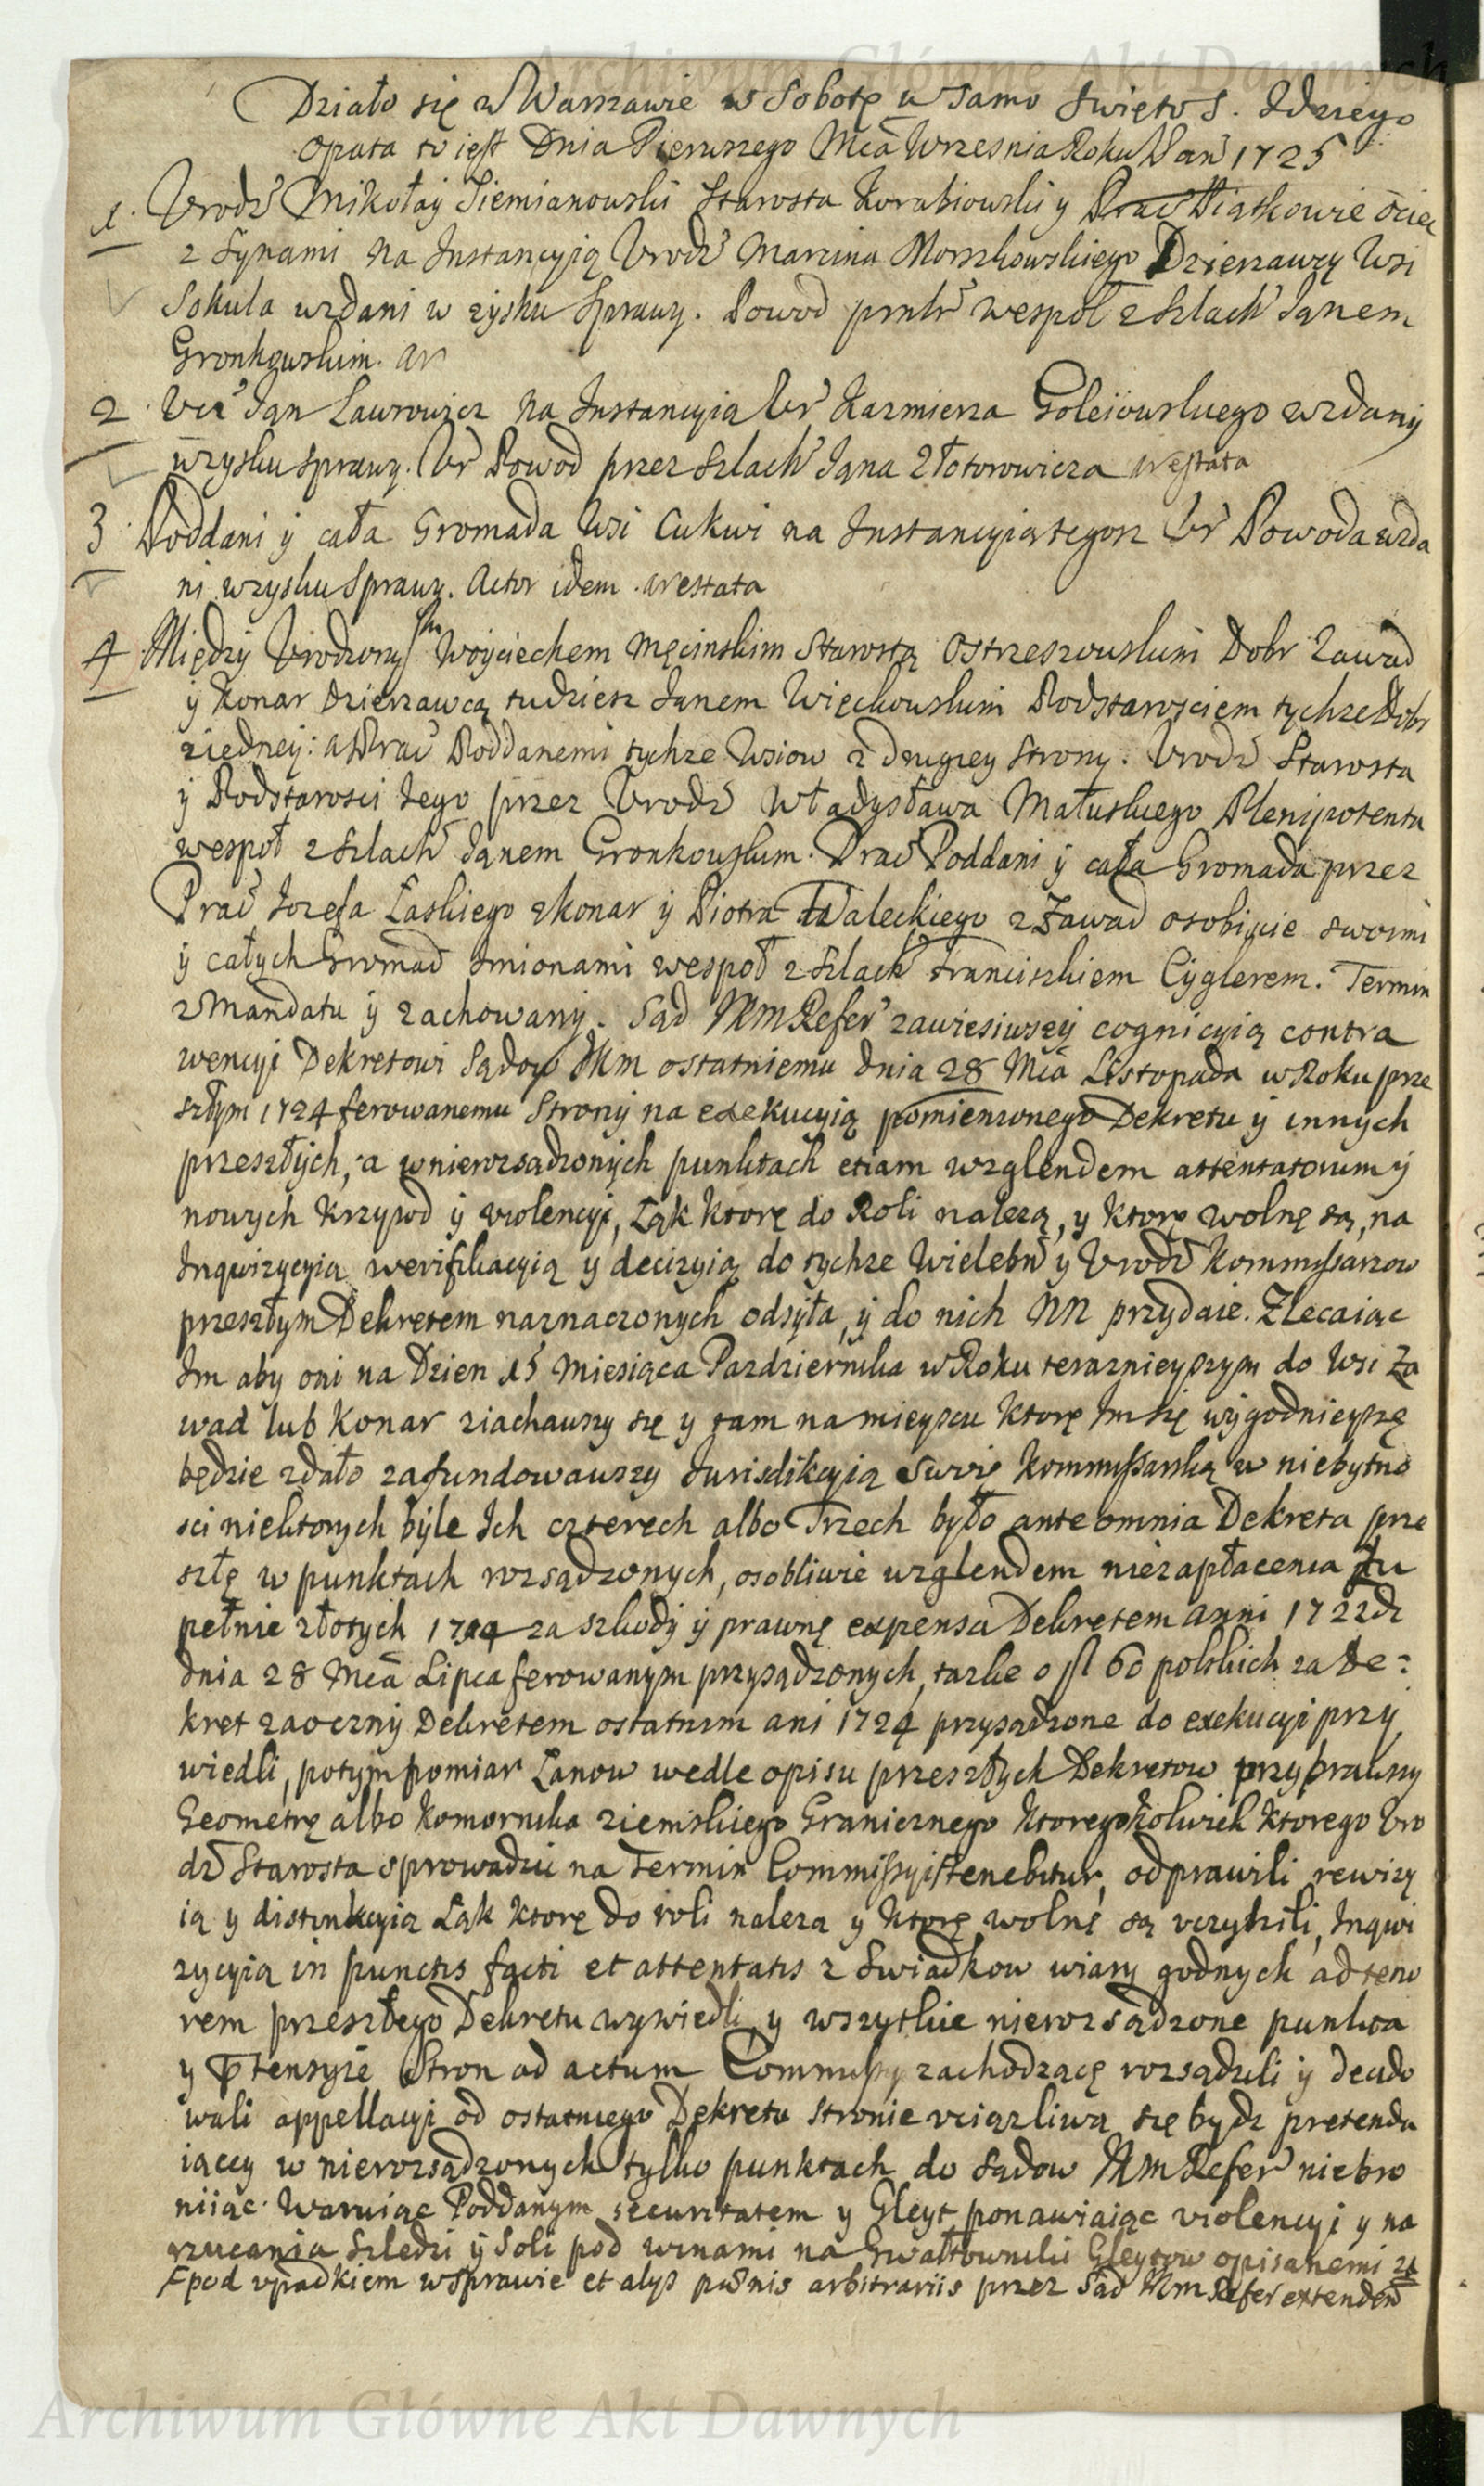 Archiwum Główne Akt Dawnych
Działo się w Warszawie w Sobotę w samo Swięto S. Idziego
Opata to iest Dnia Pierwszego Mcā Wrzesnia Roku Pań 1725
1. Urodź Mikołay Siemianowski Starosta Korabiowski y Prać Piątkowie ociec
z Synami na Instancyią Urodź Marcina Morszkowskiego Dzierzawcy Wsi
Sokula wzdani w zysku Sprawy. Powod pntr wespoł z Szlach Janem
Gronkowskim. Ar
2. Ucz Jan Laurowicz na Instancyią Ur Kazmierza Goleiowskiego wzdany
w zysku sprawy. Ur Powod przez Szlach Jana Złotorowicza arestata
3. Poddani y cała Gromada Wsi Cukwi na Instancyią tegoz Ur Powoda wzda
ni w zysku Sprawy. Actor idem. arestata
4. Między Urodzonym Woyciechem Męcinskim Starostą Ostrzeszowskim Dobr Zawad
y Konar Dzierzawcą tudziesz Janem Więckowskim Podstarosciem tychze Dobr
ziedney: a Prać Poddanemi tychze Wsiow z drugiey Strony. Urodź Starosta
y Podstarosci Jego przez Urodź Władysława Małuskiego Plenipotenta
wespoł z Szlach Janem Gronkowskim. Prać Poddani y cała Gromada przez
Prać Jozefa Laskiego z Konar y Piotra Waleckiego z Zawad osobiscie swoimi
y całych Gromad Imionami wespoł z Szlach Franciszkiem Cyglerem. Termin
z Mandatu y zachowany. Sąd JKM Refer zawiesiwszy cognicyią contra
wencyi Dekretowi Sądow JKM ostatniemu dnia 28 Mcā Listopada w Roku prze
szłym 1724 ferowanemu Strony na exekucyią pomienionego Dekretu y innych
przeszłych, a w nierozsądzonych punktach etiam wzglendem attentatorum y
nowych Krzywd y violencyi, Ląk ktore do Roli nalezą, y ktore wolne są, na
Inqwizycyią werifikacyią y decizyią do tychze Wielebń y Urodź Kommissarzow
przeszłym Dekretem naznaczonych odsyła, y do nich NN przydaie. Zlecaiąc
Im aby oni na Dzien 15 Miesiąca Pazdziernika w Roku teraznieyszym do Wsi Za
wad lub Konar ziachawszy się y tam na mieyscu ktore Im się wygodnieysze
będzie zdało zafundowawszy Jurisdikcyią swoię Kommissarską w niebytno
sci niektorych byle Ich czterech albo Trzech było ante omnia Dekreta prze
szłe w punktach rozsądzonych, osobliwie wzglendem niezapłacenia zu
pełnie złotych 1794 za szkody y prawne expensa Dekretem Anni 1722 dź
dnia 28 Mcā Lipca ferowanym przysądzonych, tazke o fl 60 polskich za De:
kret zaoczny Dekretem ostatnim ani 1724 przysądzone do exekucyi przy
wiedli, potym pomiar Lanow wedle opisu przeszłych Dekretow przybrawszy
Geometrę albo Komornika ziemskiego Granicznego ktoregokolwiek ktorego Uro
dź Starosta sprowadzić na Termin Commissyi tenebitur, odprawili rewizy
ią y distinkcyią Ląk ktore do roli naleza y ktore wolne są uczynili, Inqwi
zycyią in punctis facti et attentatis z Swiadkow wiary godnych ad teno
rem przeszłego Dekretu wywiedli y wszytkie nierozsądzone punkta
y Ptensyie Stron ad actum Commissyi zachodzące rozsądzili y decido
wali appellacyi od ostatniego Dekretu stronie uciązliwą się bydz pretendu
iącey w nierozsądzonych tylko punktach do Sądow JKM Refer niebro
niiąc. Waruiąc Poddanym securitatem y Gleyt ponawiaiąc violencyi y na
rzucania Szledzi y Soli pod winami na Gwałtowniki Gleytow opisanemi za
F pod upadkiem w sprawie et alys pænis arbitrariis przez Sąd JKM Refer extenden
Archiwum Główne Akt Dawnych